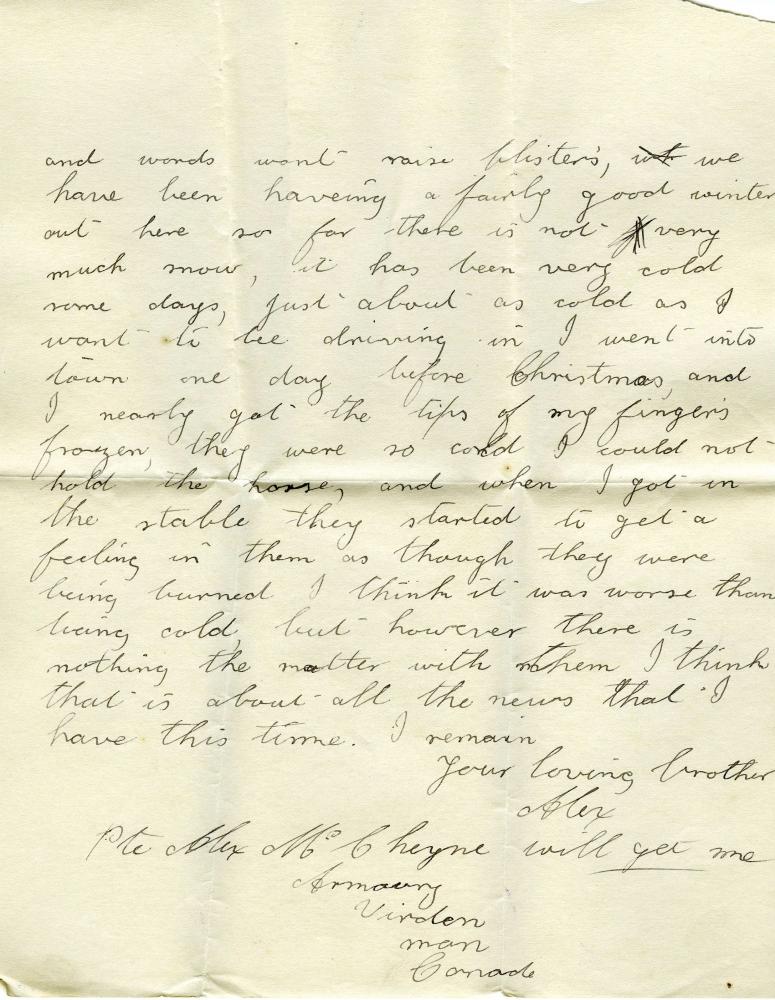 and words wont raise blisters, we
have been haveing a fairly good winter
out here so far there is not very
much snow, it has been very cold
some days, just about as cold as I
want to be driving in I went into
town one day before Christmas, and
I nearly got the tips of my fingers
frozen, they were so cold I could not
hold the horse, and when I got in
the stable they started to get a
feeling in them as though they were
being burned I think it was worse than
being cold, but however there is
nothing the matter with them I think
that is about all the news that I
have this time. I remain
Your loving brother
Alex
Pte Alex Mc Cheyne will get me
Armoury
Virden
man
Canada